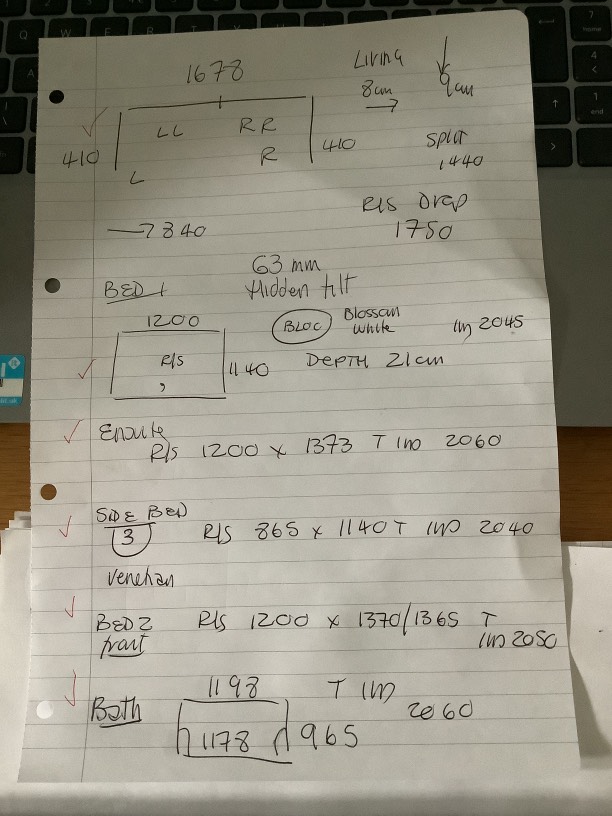 1678
Living
8cm
9cm
410
LL RR
R
410
L
SPLIT
1440
840
R/S DROP
1750
63 mm
BED 1
Hidden tilt
1200
BLOC
Blossom
White
1m 2045
R/S
1140
DEPTH 21cm
R/S 1200 x 1373 T 1m 2060
SIDE BED
3
R/S 865 x 1140 T 1m 2040
BED 2
R/S 1200 x 1370/1365 T
front
1m 2050
1198
T 1m
Bath
2060
1178
965